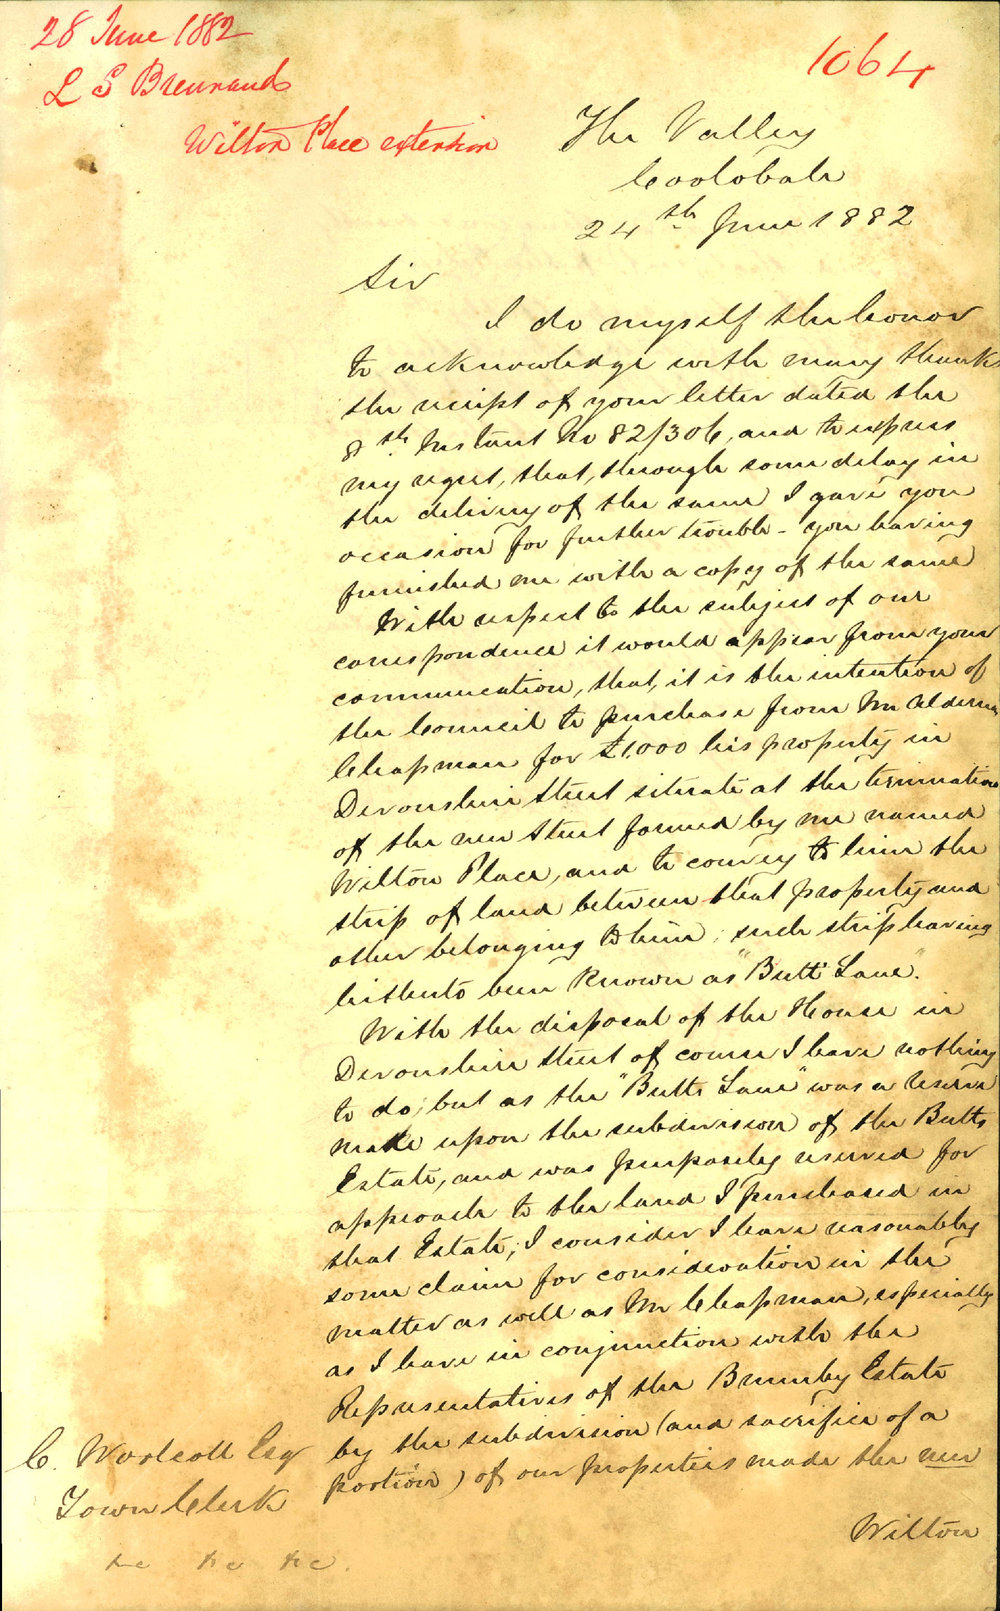 28 June 1882
L S Brennand
Wilton Place extension
1064
The Valley
Coolobah
24th June 1882
Sir
I do myself the honor
to acknowledge with many thanks
the receipt of your letter dated the
8th Instant No 82/306, and to express
my regret, that, through some delay in
the delivery of the same I gave you
occasion for further trouble - you having
furnished me with a copy of the same
With respect to the subject of our
correspondence it would appear from your
communication, that, it is the intention of
the Council to purchase from Mr Alderman
Chapman for £1,000 his property in
Devonshire Street situate at the termination
of the new Street formed by me named
Wilton Place, and to convey to him the
strip of land between that property and
other belonging to him; such strip having
hitherto been known as "Butts Lane".
With the disposal of the House in
Devonshire Street of course I have nothing
to do; but as the "Butts Lane" was a reserve
made upon the subdivision of the Butts
Estate, and was purposely reserved for
approach to the land I purchased in
that Estate; I consider I have reasonably
some claim for consideration in the
matter as well as Mr Chapman, especially
as I have in conjunction with the
Representatives of the Brumby Estate
by the subdivision (and sacrifice of a
portion) of our properties made the new
Wilton
C. Woolcott Esq
Town Clerk
&c &c &c.